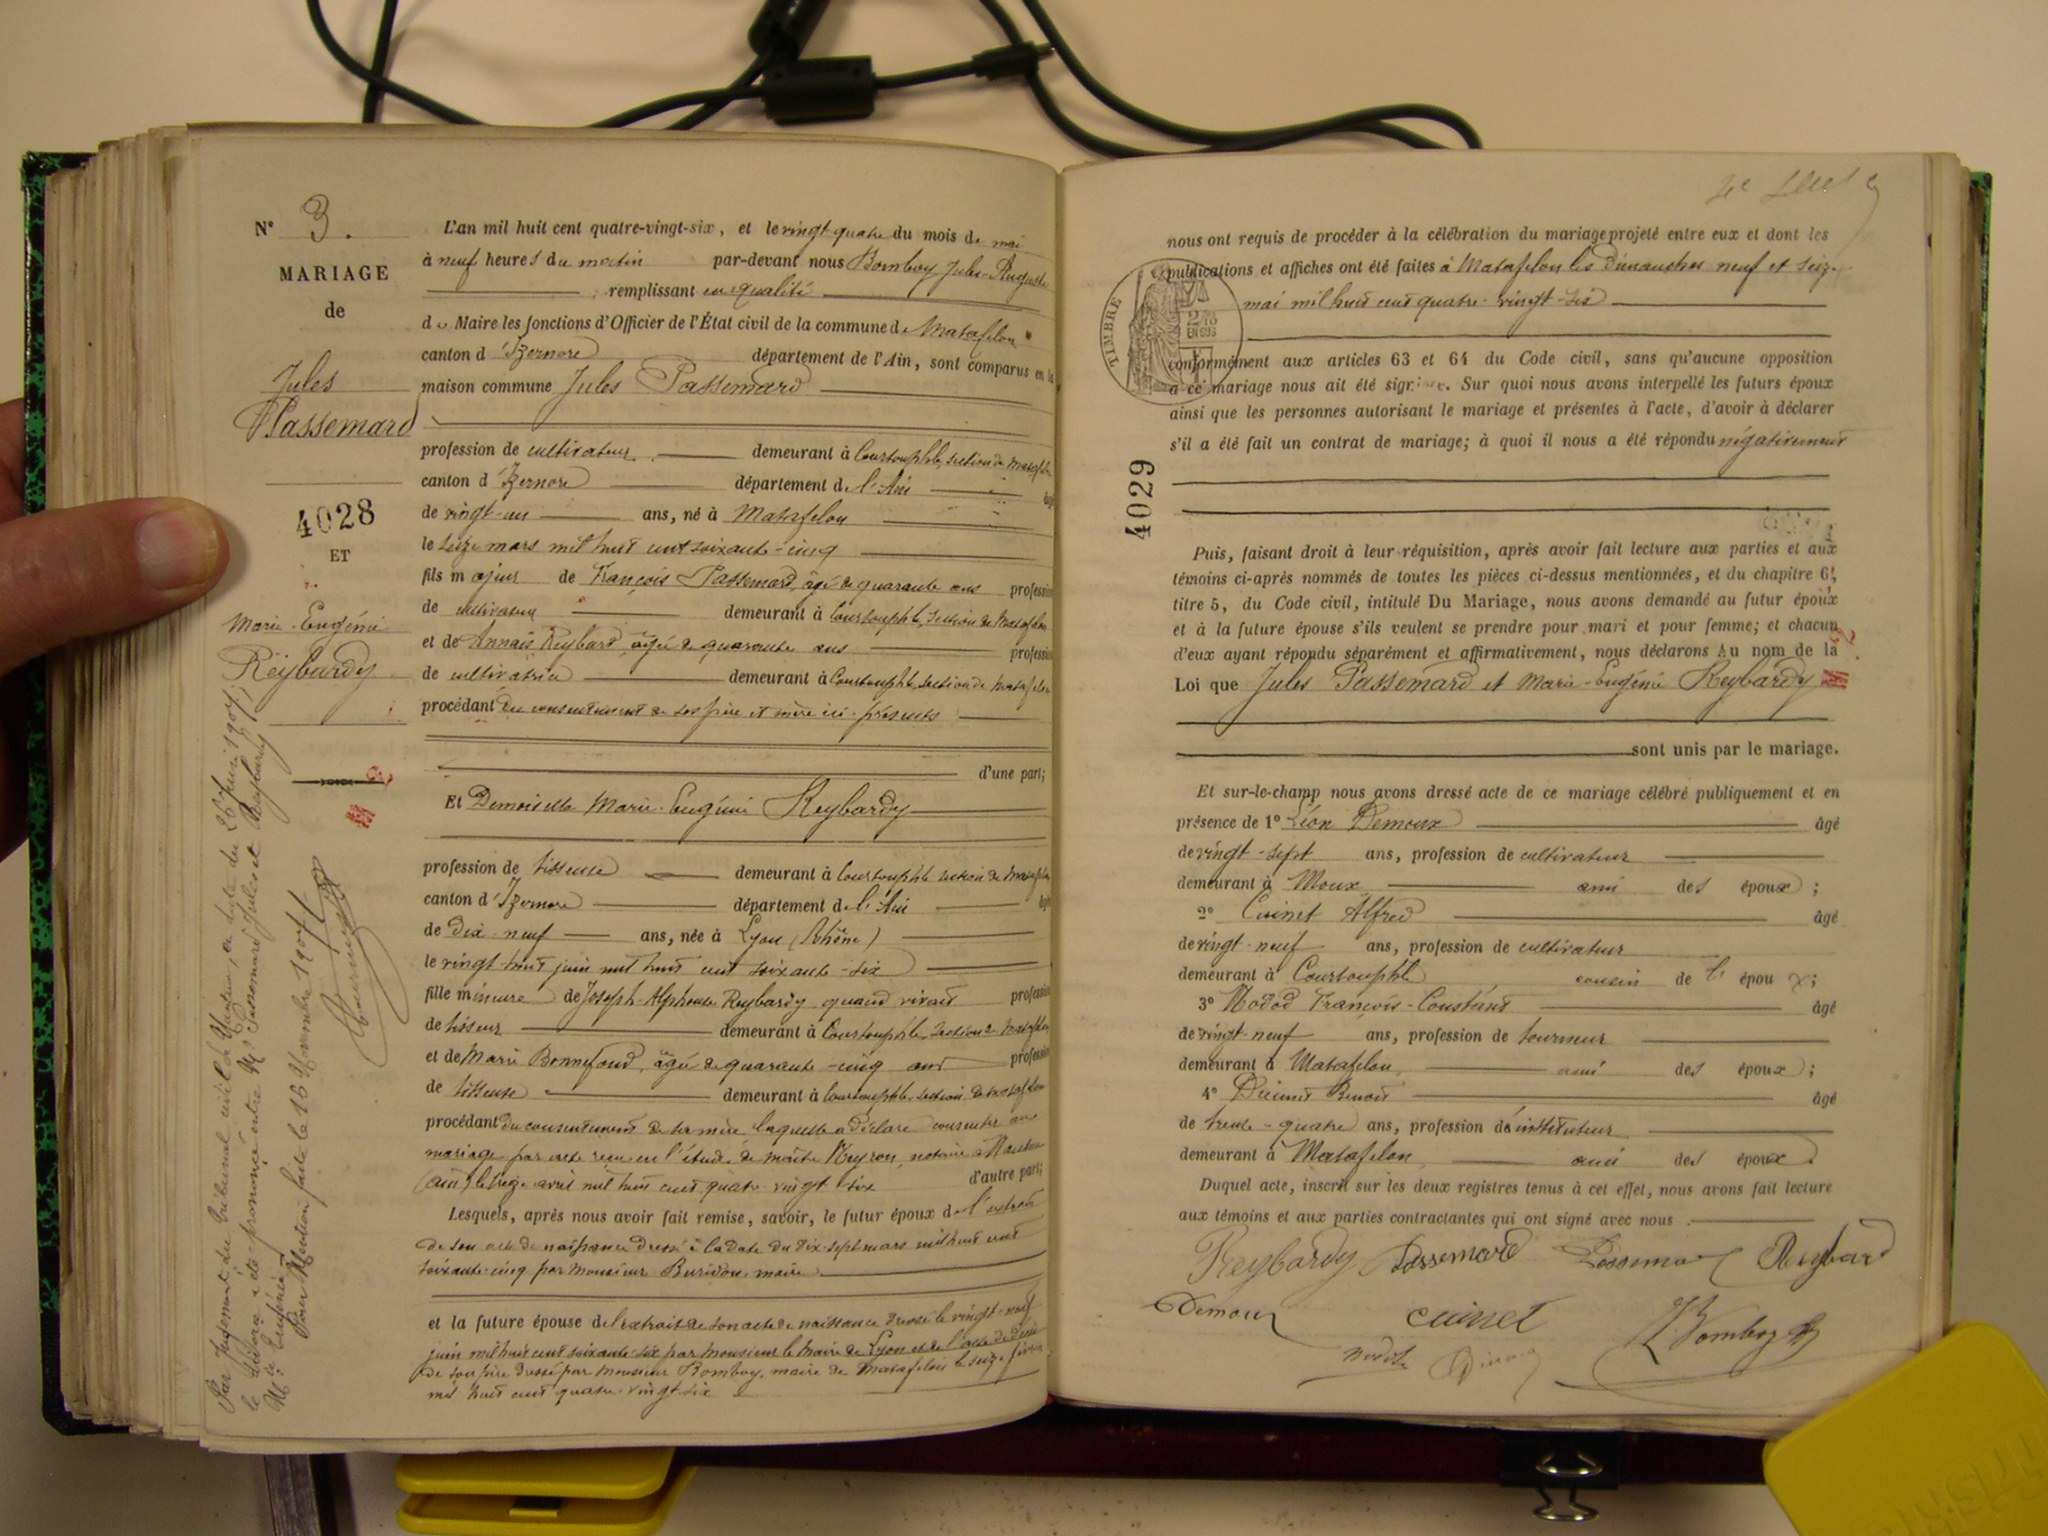 N° 3.
MARIAGE
de
Jules
Passemard
4028
ET
Marie-Eugénie
Reybardy
Par Jugement du tribunal civil de Nantua, en date du 26 Juin 1907,
le divorce a été prononcé entre Mr Passemard Jules et Reybardy
Mie Eugénie.
Pour Mention faite le 16 Novembre 1907
L'an mil huit cent quatre-vingt-six, et le vingt quatre du mois de mai
à neuf heures du matin par-devant nous Bomboy Jules-Auguste
remplissant en qualité
de Maire les fonctions d'Officier de l'État civil de la commune de Matafelon
canton d'Izernore département de l'Ain, sont comparus en la
maison commune Jules Passemard
profession de cultivateur demeurant à Courtouphle, section de Matafelon
canton d'Izernore département de l'Ain âgé
de vingt-un ans, né à Matafelon
le seize mars mil huit cent soixante-cinq
fils majeur de François Passemard, âgé de quarante ans profession
de cultivateur demeurant à Courtouphle, section de Matafelon
et de Annaïs Reybard, âgée de quarante ans profession
de cultivatrice demeurant à Courtouphle, section de Matafelon
procédant du consentement de ses père et mère ici présents
d'une part;
Et Demoiselle Marie-Eugénie Reybardy
profession de tisseuse demeurant à Courtouphle section de Matafelon
canton d'Izernore département de l'Ain âgée
de dix-neuf ans, née à Lyon (Rhône)
le vingt-huit juin mil huit cent soixante-six
fille mineure de Joseph-Alphonse Reybardy quand vivait profession
de tisseur demeurant à Courtouphle, section de Matafelon
et de Marie Bonnefond, âgée de quarante-cinq ans profession
de tisseuse demeurant à Courtouphle, section de Matafelon
procédant du consentement de sa mère laquelle a déclaré consentir au
mariage par acte reçu en l'étude de maître Neyron, notaire à Nantua
(ain) le treize avril mil huit cent quatre vingt six d'autre part;
Lesquels, après nous avoir fait remise, savoir, le futur époux de l'extrait
de son acte de naissance dressé à la date du dix-sept mars mil huit cent
soixante-cinq par Monsieur Buridon, maire
et la future épouse de l'extrait de son acte de naissance dressé le vingt-neuf
juin mil huit cent soixante-six par monsieur le Maire de Lyon et de l'acte de décès
de son père dressé par monsieur Bomboy, maire de Matafelon le seize février
mil huit cent quatre-vingt six
nous ont requis de procéder à la célébration du mariage projeté entre eux et dont les
publications et affiches ont été faites à Matafelon les dimanches neuf et seize
mai mil huit cent quatre-vingt-six
TIMBRE
conformément aux articles 63 et 64 du Code civil, sans qu'aucune opposition
à ce mariage nous ait été signifiée. Sur quoi nous avons interpellé les futurs époux
ainsi que les personnes autorisant le mariage et présentes à l'acte, d'avoir à déclarer
s'il a été fait un contrat de mariage; à quoi il nous a été répondu négativement
4029
Puis, faisant droit à leur réquisition, après avoir fait lecture aux parties et aux
témoins ci-après nommés de toutes les pièces ci-dessus mentionnées, et du chapitre 6,
titre 5, du Code civil, intitulé Du Mariage, nous avons demandé au futur époux
et à la future épouse s'ils veulent se prendre pour mari et pour femme; et chacun
d'eux ayant répondu séparément et affirmativement, nous déclarons Au nom de la
Loi que Jules Passemard et Marie-Eugénie Reybardy
sont unis par le mariage.
Et sur-le-champ nous avons dressé acte de ce mariage célébré publiquement et en
présence de 1° Léon Demoux âgé
de vingt-sept ans, profession de cultivateur
demeurant à Moux ami des époux;
2° Cuinet Alfred âgé
de vingt-neuf ans, profession de cultivateur
demeurant à Courtouphle cousin de l'époux;
3° Nodod François-Constant âgé
de vingt-neuf ans, profession de tourneur
demeurant à Matafelon, ami des époux;
4° Benoit âgé
de trente-quatre ans, profession d'instituteur
demeurant à Matafelon, ami des époux.
Duquel acte, inscrit sur les deux registres tenus à cet effet, nous avons fait lecture
aux témoins et aux parties contractantes qui ont signé avec nous.
Reybardy Passemard Passemard Reybard
Demoux Cuinet J. Bomboy